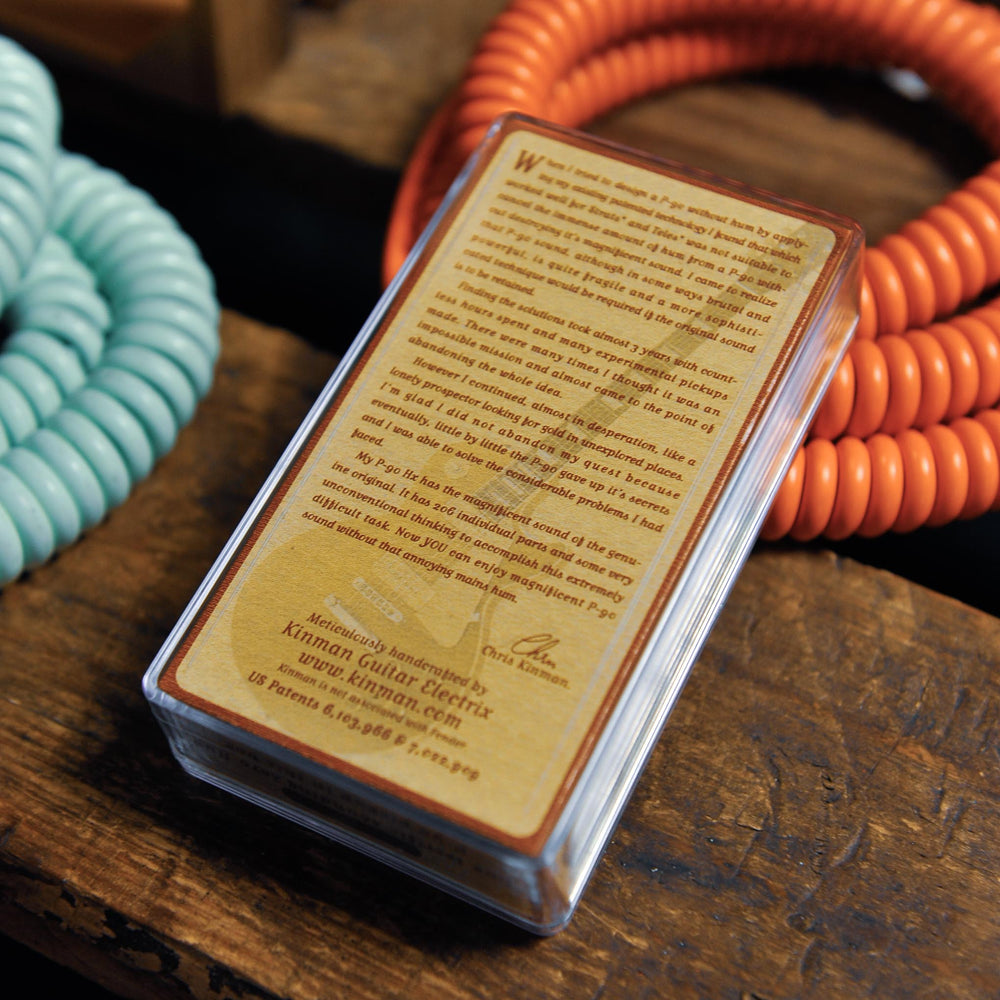 When I tried to design a P-90 without hum by apply-
ing my existing patented technology I found that which
worked well for Strats® and Teles® was not suitable to
extend the immense amount of hum from a P-90 with-
out destroying it's magnificent sound. I came to realize
that P-90 sound, although in some ways brutal and
powerful, is quite fragile and a more sophisti-
cated technique would be required if the original sound
is to be retained.
Finding the solutions took almost 3 years with count-
less hours spent and many experimental pickups
made. There were many times I thought it was an
impossible mission and almost came to the point of
abandoning the whole idea.
However I continued, almost in desperation, like a
lonely prospector looking for gold in unexplored places.
I'm glad I did not abandon my quest because
eventually, little by little the P-90 gave up it's secrets
and I was able to solve the considerable problems I had
faced.
My P-90 Hx has the magnificent sound of the genu-
ine original. It has 206 individual parts and some very
unconventional thinking to accomplish this extremely
difficult task. Now YOU can enjoy magnificent P-90
sound without that annoying mains hum.
Chris Kinman.
Meticulously handcrafted by
Kinman Guitar Electrix
www.kinman.com
Kinman is not associated with Fender
US Patents 6,103,966 & 7,022,909